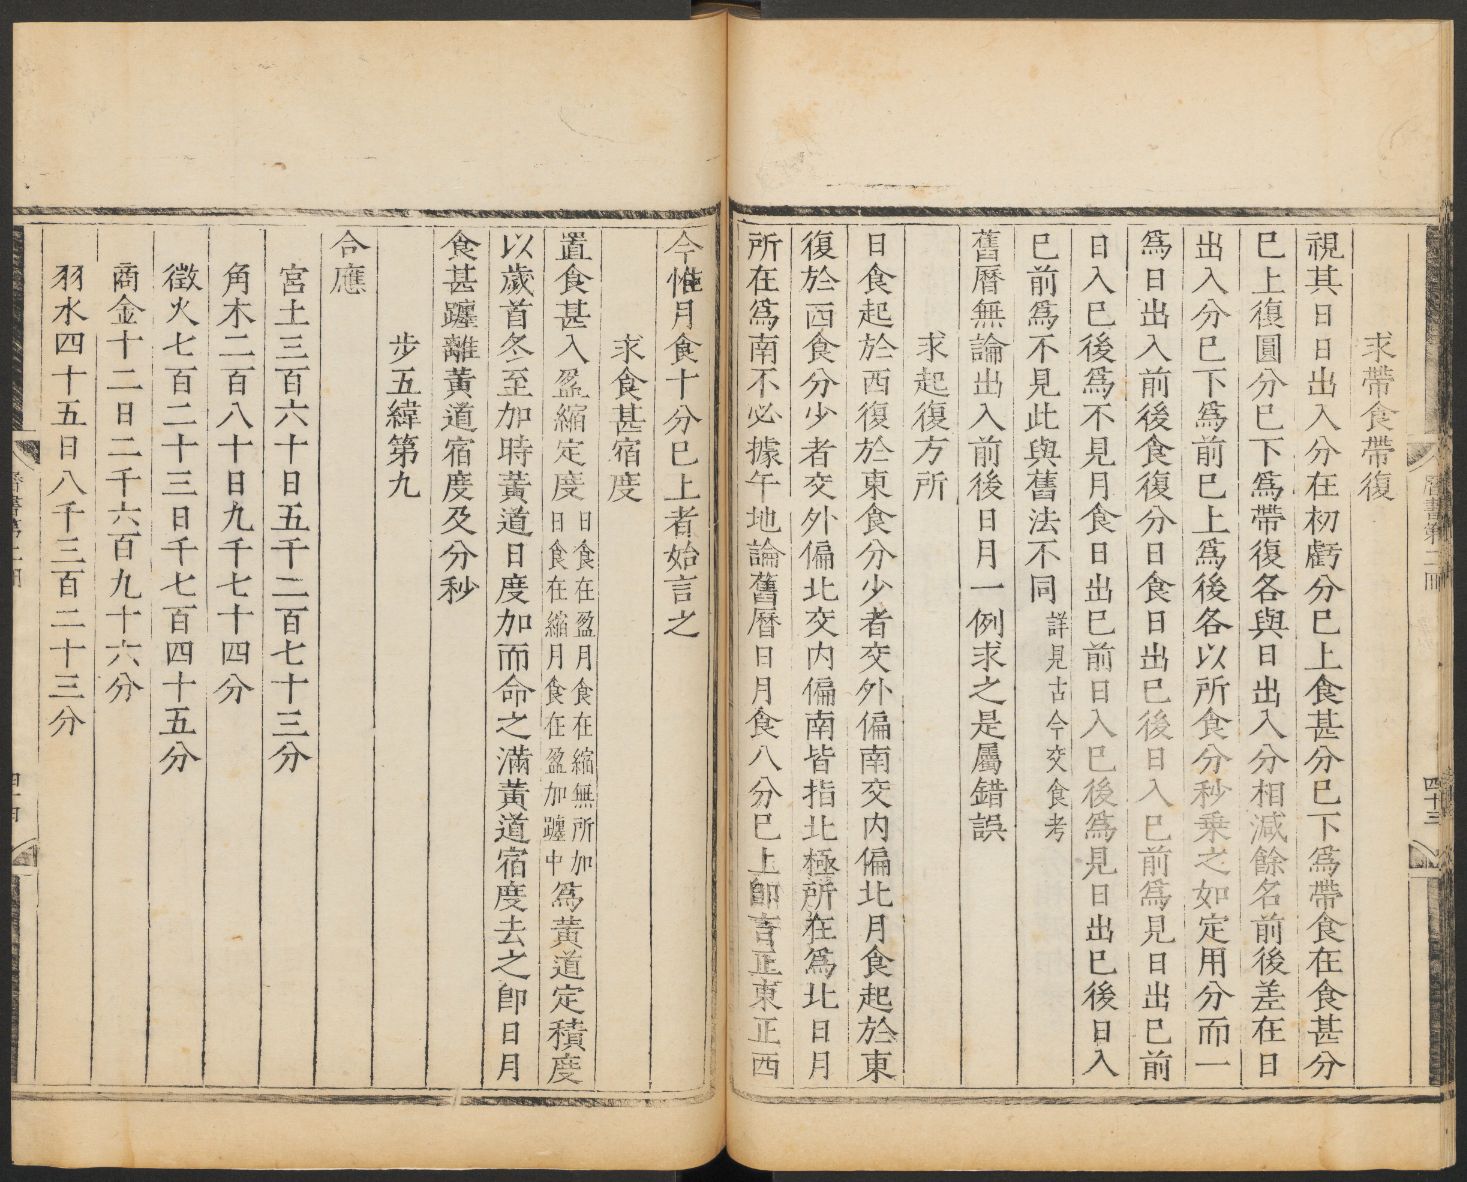 求帶食帶復
視其日日出入分在初虧分巳上食甚分巳下爲帶食在食甚分
巳上復圓分巳下爲帶復各與日出入分相減餘名前後差在日
出入分巳下爲前巳上爲後各以所食分秒乗之如定用分而一
爲日出入前後食復分日食日出巳後日入巳前爲見日出巳前
日入巳後爲不見月食日出巳前日入巳後爲見日出巳後日入
巳前爲不見此與舊法不同詳見古今交食考
舊曆無論出入前後日月一例求之是屬錯誤
求起復方所
日食起於西復於東食分少者交外偏南交内偏北月食起於東
復於西食分少者交外偏北交内偏南皆指北極所在爲北日月
所在爲南不必據午地論舊曆日月食八分巳上卽言正東正西
四十三
今惟月食十分巳上者始言之
求食甚宿度
置食甚入盈縮定度日食在盈月食在縮無所加日食在縮月食在盈加躔中爲黃道定積度
以歲首冬至加時黃道日度加而命之滿黃道宿度去之卽日月
食甚躔離黃道宿度及分秒
步五緯第九
合應
宮土三百六十日五千二百七十三分
角木二百八十日九千七十四分
徵火七百二十三日千七百四十五分
商金十二日二千六百九十六分
羽水四十五日八千三百二十三分